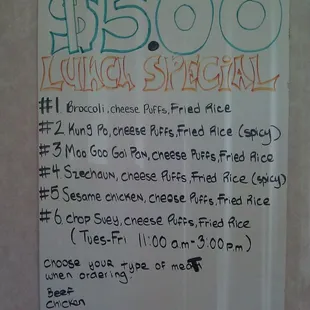 $5.00
LUNCH SPECIAL
#1 Broccoli, cheese Puffs, Fried Rice
#2 Kung Po, cheese Puffs, Fried Rice (spicy)
#3 Moo Goo Gai Pan, cheese Puffs, Fried Rice
#4 Szechaun, cheese Puffs, Fried Rice (spicy)
#5 Sesame chicken, cheese Puffs, Fried Rice
#6 chop Suey, cheese Puffs, Fried Rice
(Tues-Fri 11:00 am-3:00pm)
choose your type of meaT
when ordering.
Beef
Chicken